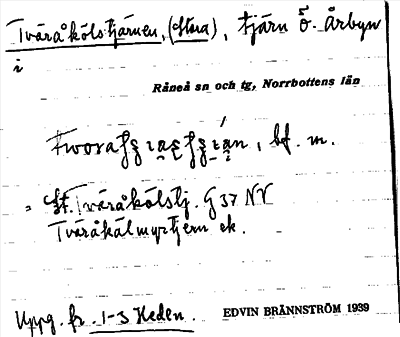 Tväråkölstjärnen, (Stora), tjärn Ö. Årbyn
i
Råneå sn och tg, Norrbottens län
bf. m.
= St. Tväråkölstj. G 37 NV
Tväråkälmyrtjern ek.
Uppg. fr. 1-3 Heden. EDVIN BRÄNNSTRÖM 1939